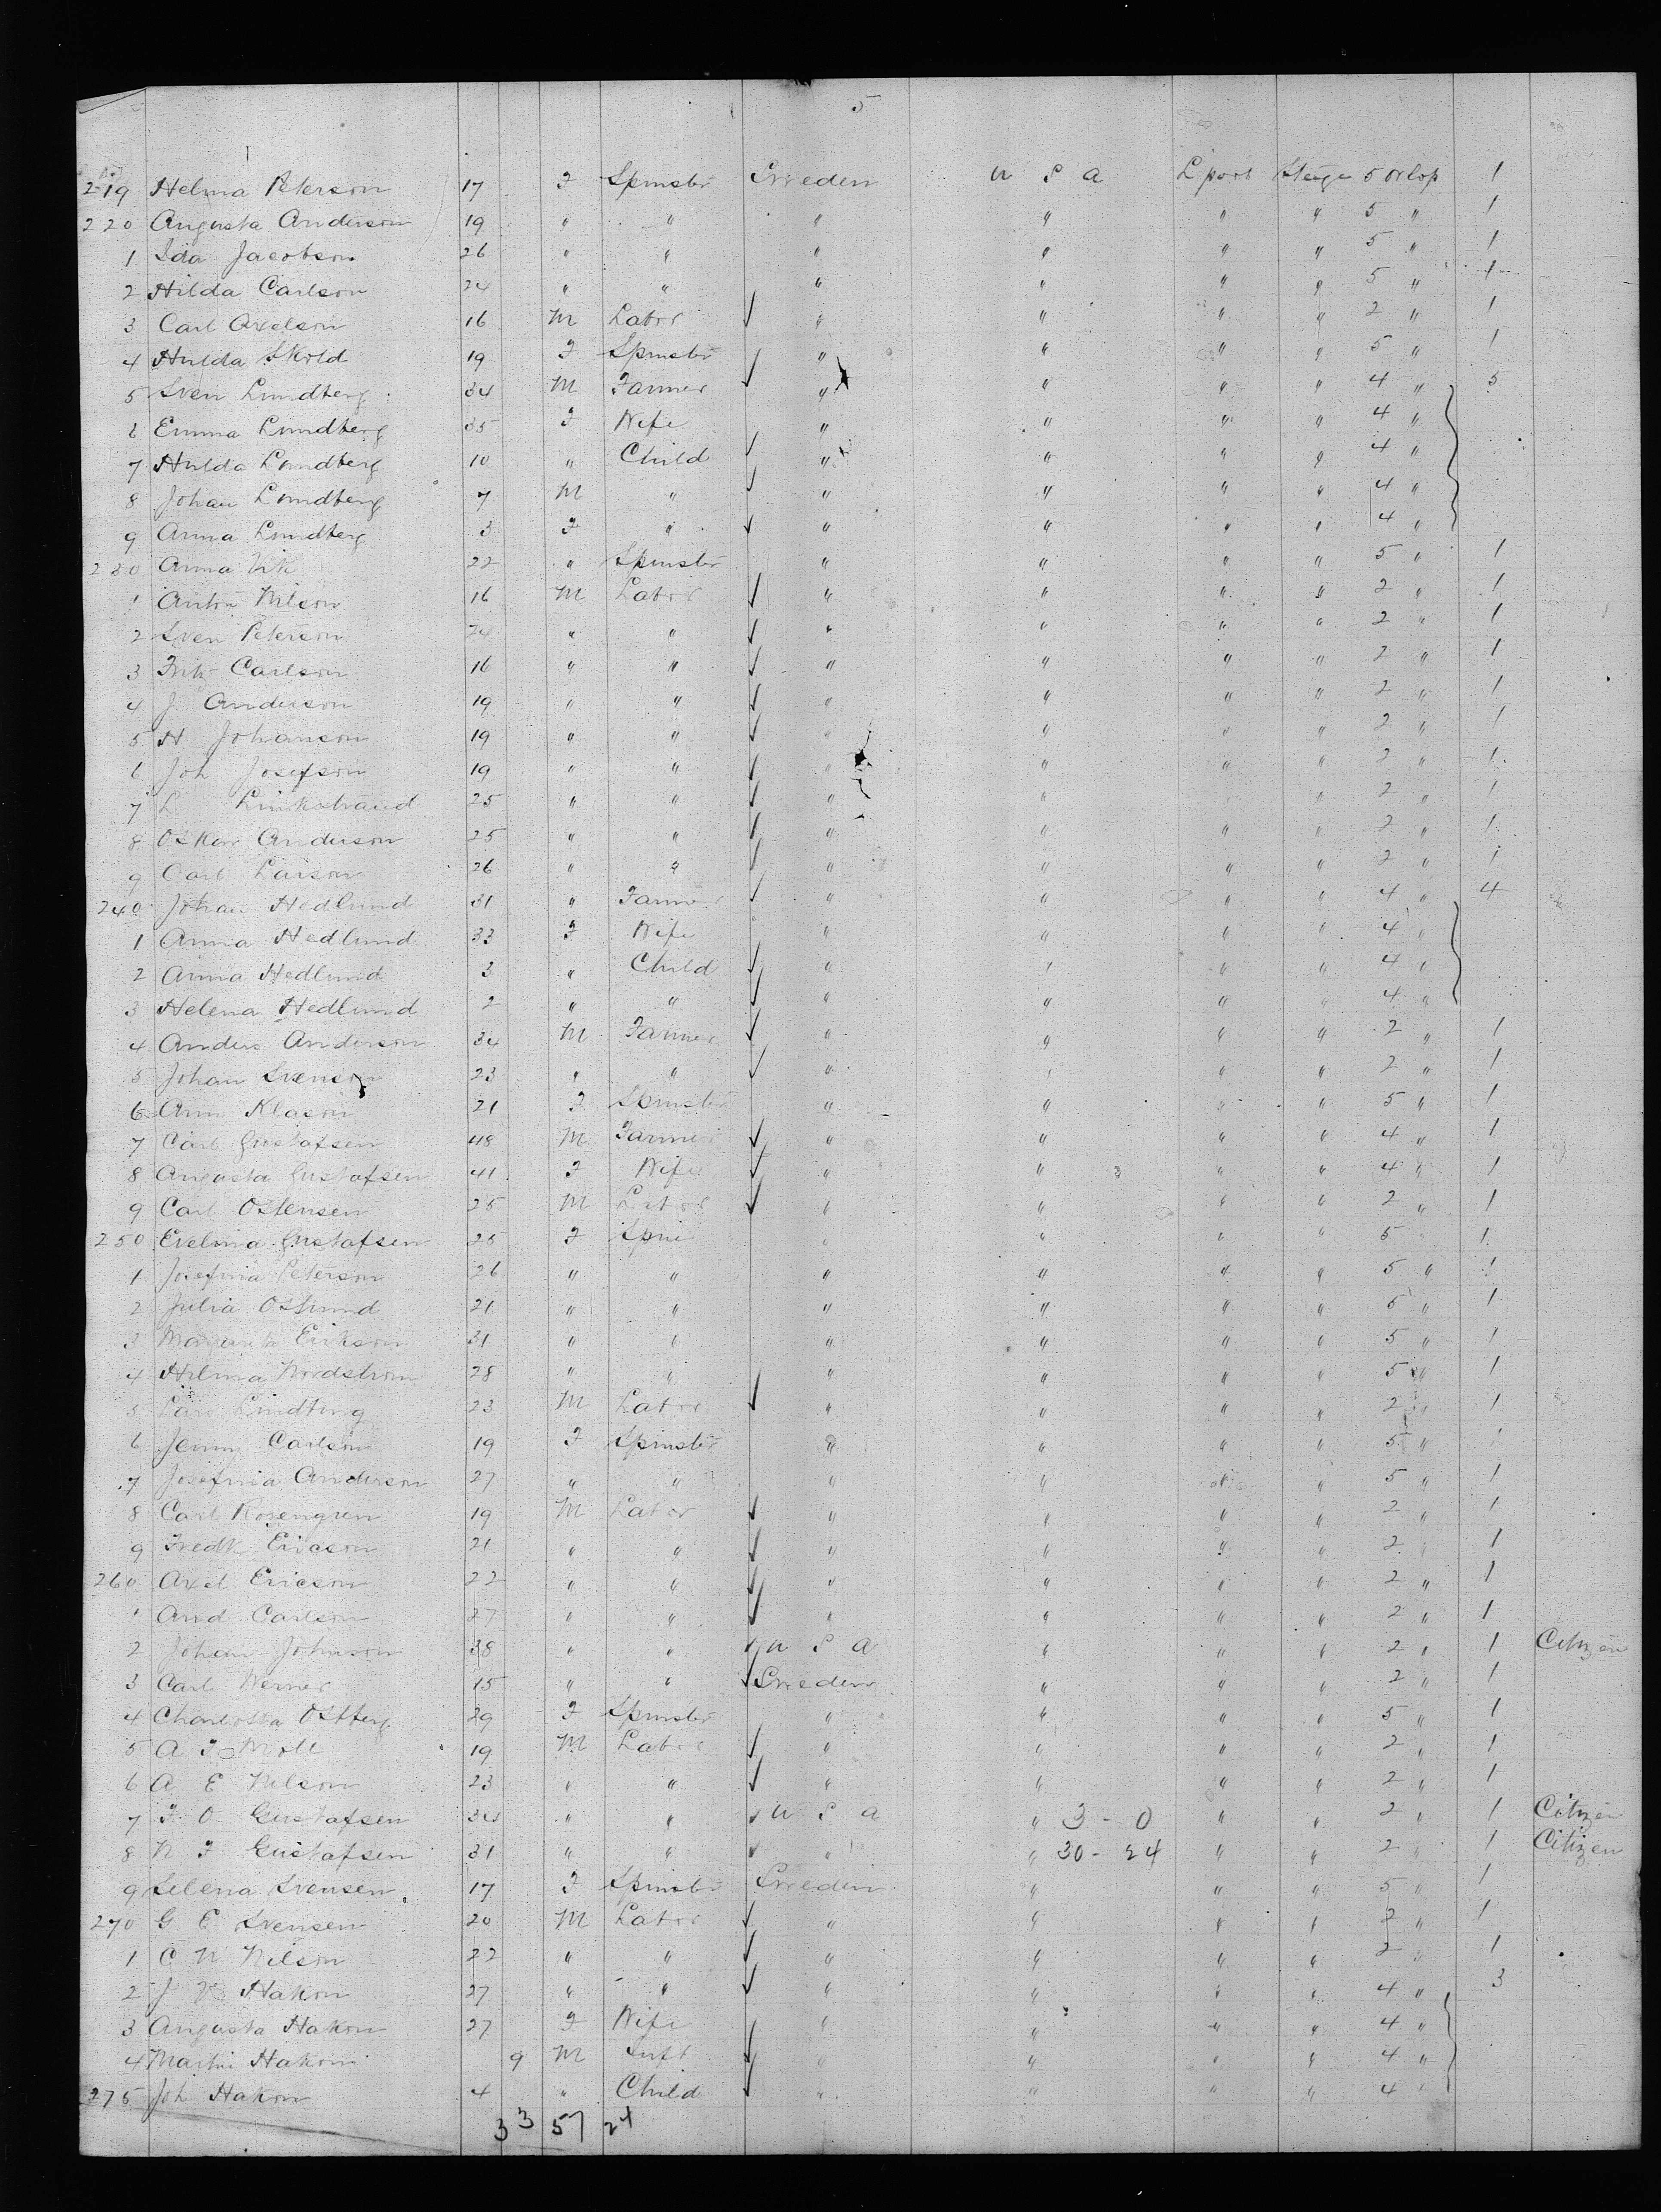 5
219 Helma Peterson 17 F Spinster Sweden U S A L'pool Steige 5 Orlop 1
220 Augusta Anderson 19 " " " " " " 5 " 1
1 Ida Jacobson 26 " " " " " " 5 " 1
2 Hilda Carlson 24 " " " " " " 5 " 1
3 Carl Axelson 16 M Labor ✓ " " " " 2 " 1
4 Hulda Skold 19 F Spinster " " " " 5 " 1
5 Sven Lundberg 34 M Farmer ✓ " " " " 4 " 5
6 Emma Lundberg 35 F Wife " " " " 4 "
7 Hulda Lundberg 10 " Child ✓ " " " " 4 "
8 Johan Lundberg 7 M " ✓ " " " " 4 "
9 Anna Lundberg 3 F " ✓ " " " " 4 "
230 Anna Vik 22 " Spinster " " " " 5 " 1
1 Anton Nilson 16 M Labor ✓ " " " " 2 " 1
2 Sven Peterson 24 " " ✓ " " " " 2 " 1
3 Fritz Carlson 16 " " ✓ " " " " 2 " 1
4 J Anderson 19 " " ✓ " " " " 2 " 1
5 H Johanson 19 " " ✓ " " " " 2 " 1
6 Joh Josefson 19 " " ✓ " " " " 2 " 1
7 L Linkstrand 25 " " ✓ " " " 2 " 1
8 Oskar Anderson 25 " " ✓ " " " " 2 " 1
9 Carl Larson 26 " " ✓ " " " " 2 " 1
240 Johan Hedlund 31 " Farmer ✓ " " " " 4 " 4
1 Anna Hedlund 33 F Wife " " " " 4 "
2 Anna Hedlund 3 " Child ✓ " " " " 4 "
3 Helena Hedlund 2 " " ✓ " " " " 4 "
4 Anders Anderson 34 M Farmer ✓ " " " " 2 " 1
5 Johan Svenson 23 " " ✓ " " " " 2 " 1
6 Ann Klason 21 F Spinster " " " " 5 " 1
7 Carl Gustafsen 48 M Farmer ✓ " " " " 4 " 1
8 Augusta Gustafsen 41 F Wife ✓ " " " " 4 " 1
9 Carl Ostensen 25 M Labor ✓ " " " " 2 " 1
250 Evelina Gustafsen 25 F Spin " " " " 5 1
1 Josefina Peterson 26 " " " " " " 5 " 1
2 Julia Oslund 21 " " " " " " 5 " 1
3 Margareta Erikson 31 " " " " " " 5 " 1
4 Hilma Nordstrom 28 " " " " " " 5 " 1
5 Lars Lindberg 23 M Labor ✓ " " " " 2 " 1
6 Jenny Carlson 19 F Spinster " " " " 5 " 1
7 Josefina Anderson 27 " " " " " " 5 " 1
8 Carl Rosengren 19 M Labor ✓ " " " " 2 " 1
9 Fredk Ericson 21 " " ✓ " " " " 2 " 1
260 Axel Ericson 22 " " ✓ " " " " 2 " 1
1 And Carlson 27 " " ✓ " " " " 2 " 1
2 Johan Johnson 38 " " ✓ U S A " " " 2 " 1 Citizen
3 Carl Werner 15 " " ✓ Sweden " " " 2 " 1
4 Charlotta Ostberg 29 F Spinster " " " " 5 " 1
5 A F Moll 19 M Labor ✓ " " " " 2 " 1
6 A E Nilson 23 " " ✓ " " " " 2 " 1
7 F O Gustafsen 34 " " ✓ U S A " 3 - 0 " " 2 " 1 Citizen
8 N F Gustafsen 31 " " ✓ " " 30 - 24 " " 2 " 1 Citizen
9 Selena Svensen 17 F Spinster Sweden " " " 5 " 1
270 G E Svensen 20 M Labor ✓ " " " " 2 " 1
1 C N Nilson 22 " " ✓ " " " " 2 " 1
2 J Hakon 27 " " ✓ " " " " 4 " 3
3 Augusta Hakon 27 F Wife " " " " 4 "
4 Martin Hakon 9 M Inft ✓ " " " " 4 "
275 Joh Hakon 4 " Child ✓ " " " " 4 "
33 57 24